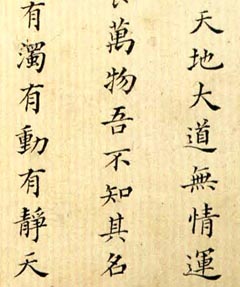 天地大道無情運
萬物吾不知其名
有濁有動有靜天